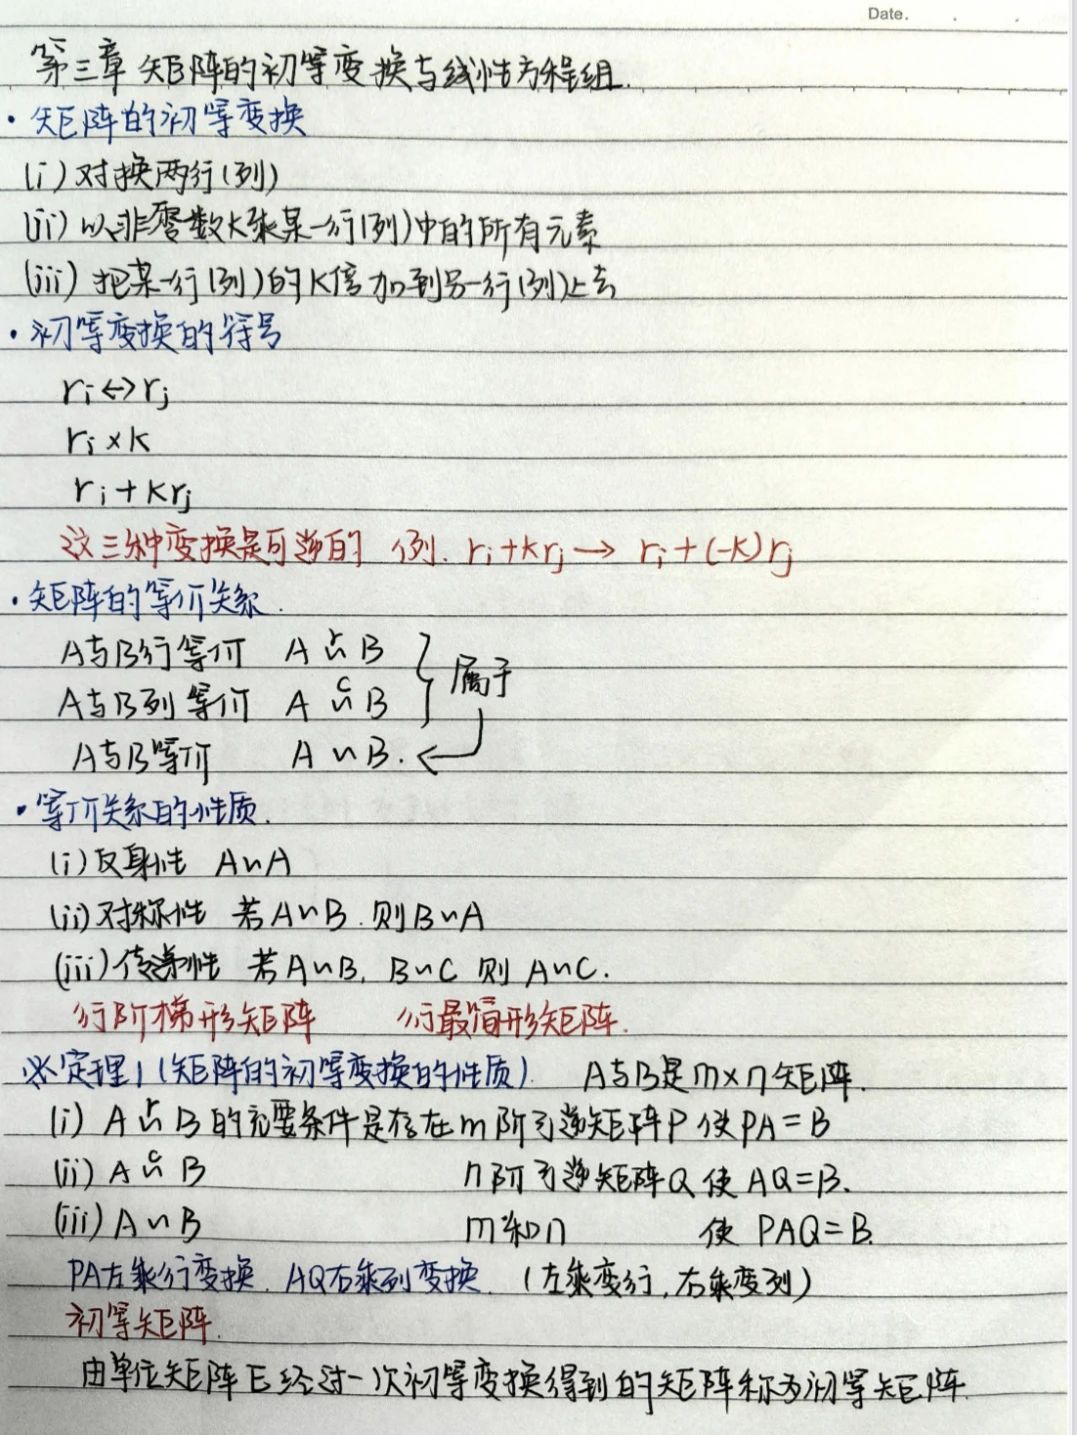 Date.
第三章 矩阵的初等变换与线性方程组.
·矩阵的初等变换
(i) 对换两行(列)
(ii) 以非零数K乘某一行(列)中的所有元素
(iii) 把某一行(列)的K倍加到另一行(列)上去
·初等变换的符号
ri↔rj
ri×k
ri+krj
这三种变换是可逆的 例. ri+krj→ ri+(-k)rj
·矩阵的等价关系.
A与B行等价 A r∽ B
A与B列等价 A c∽ B } 属于
A与B等价 A∽B. ←
·等价关系的性质.
(i) 反身性 A∽A
(ii) 对称性 若A∽B.则B∽A
(iii) 传递性 若A∽B, B∽C 则 A∽C.
行阶梯形矩阵 行最简形矩阵.
※定理1 (矩阵的初等变换的性质). A与B是m×n矩阵.
(i) A r∽ B 的充要条件是存在m阶可逆矩阵P 使PA=B
(ii) A c∽ B n阶可逆矩阵Q 使 AQ=B.
(iii) A∽B m和n 使 PAQ=B.
PA左乘行变换. AQ右乘列变换. (左乘变行,右乘变列)
初等矩阵.
由单位矩阵E经过一次初等变换得到的矩阵称为初等矩阵.